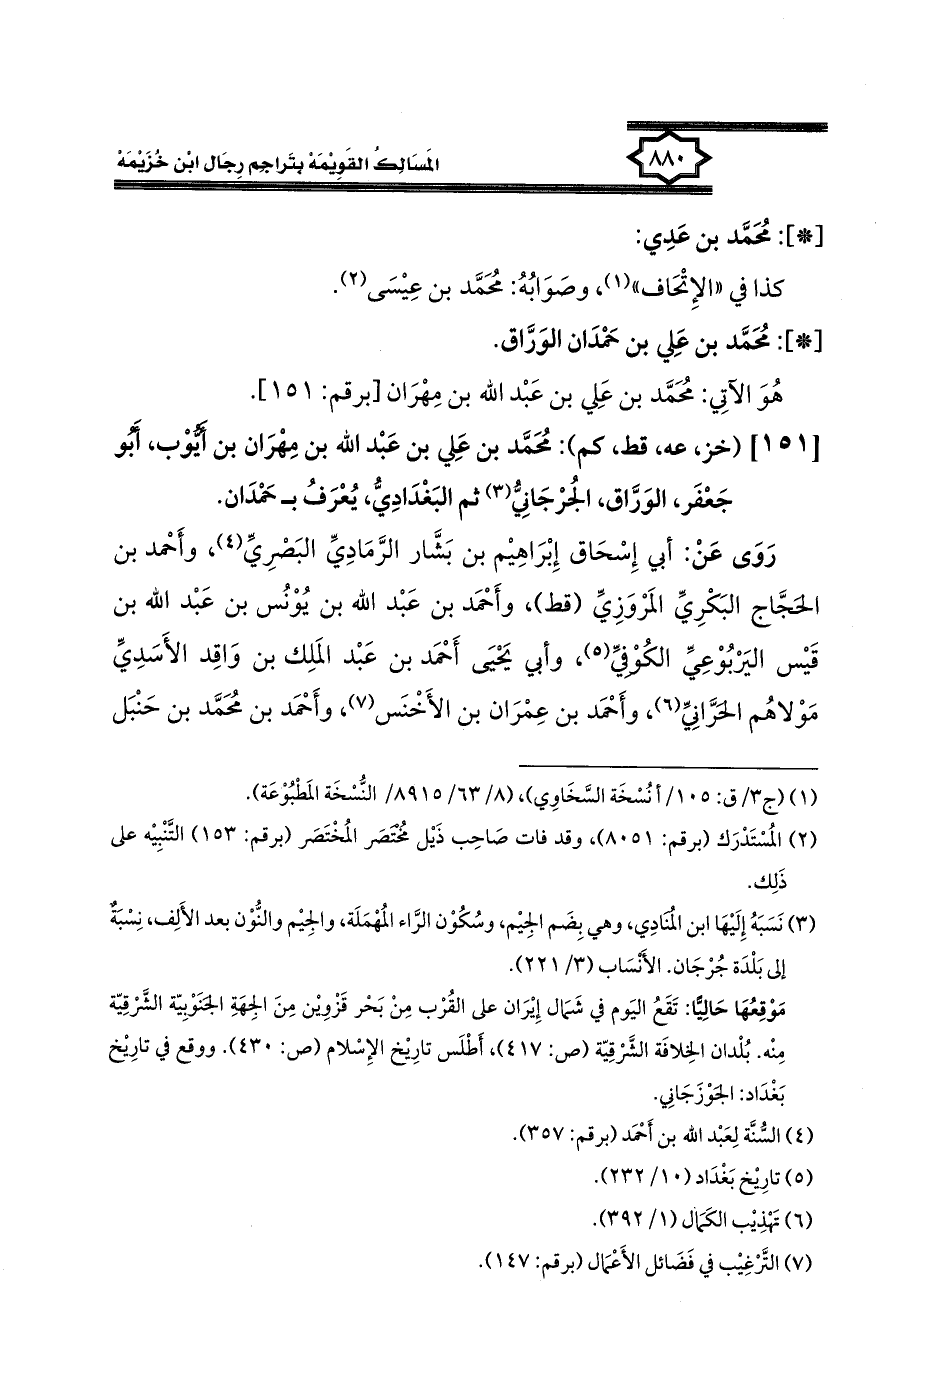 ٨٨٠
المَسَالِكُ القَوِيْمَةْ بِتَراجِمِ رِجَال ابْن خُزَيْمَةْ
[*]: مُحَمَّد بن عَدِي:
كذا في «الإِتْحَاف»(١)، وصَوَابُهُ: مُحَمَّد بن عِيْسَى(٢).
[*]: مُحَمَّد بن عَلِي بن حَمْدَان الوَرَّاق.
هُوَ الآتِي: مُحَمَّد بن عَلِي بن عَبْد الله بن مِهْرَان [برقم: ١٥١].
[١٥١] (خز، عه، قط، كم): مُحَمَّد بن عَلِي بن عَبْد الله بن مِهْرَان بن أَيُّوْب، أَبُو
جَعْفَر، الوَرَّاق، الجُرْجَانِيُّ(٣) ثم البَغْدَادِيُّ، يُعْرَفُ بـ حَمْدَان.
رَوَى عَنْ: أبي إِسْحَاق إِبْرَاهِيْم بن بَشَّار الرَّمَادِيِّ البَصْرِيِّ(٤)، وأَحْمَد بن
الحَجَّاج البَكْرِيِّ المَرْوَزِيِّ (قط)، وأَحْمَد بن عَبْد الله بن يُوْنُس بن عَبْد الله بن
قَيْس اليَرْبُوْعِيِّ الكُوْفِيِّ(٥)، وأبي يَحْيَى أَحْمَد بن عَبْد المَلِك بن وَاقِد الأَسَدِيِّ
مَوْلاهُم الحَرَّانِيِّ(٦)، وأَحْمَد بن عِمْرَان بن الأَخْنَس(٧)، وأَحْمَد بن مُحَمَّد بن حَنْبَل
(١) (ج٣/ ق: ١٠٥/ أ نُسْخَة السَّخَاوِي)، (٨/ ٦٣/ ٨٩١٥/ النُّسْخَة المَطْبُوْعَة).
(٢) المُسْتَدْرَك (برقم: ٨٠٥١)، وقد فات صَاحِب ذَيْل مُخْتَصَر المُخْتَصَر (برقم: ١٥٣) التَّنْبِيْه على
ذَلِك.
(٣) نَسَبَهُ إِلَيْهَا ابن المُنَادِي، وهي بِضَم الجِيْم، وسُكُوْن الرَّاء المُهْمَلَة، والجِيْم والنُّوْن بعد الأَلِف، نِسْبَةٌ
إلى بَلْدَة جُرْجَان. الأَنْسَاب (٣/ ٢٢١).
مَوْقِعُهَا حَالِيًّا: تَقَعُ اليَوم في شَمَال إيْرَان على القُرْب مِنْ بَحْر قَزْوِيْن مِنَ الجِهَةِ الجَنُوْبِيَّة الشَّرْقِيَّة
مِنْه. بُلْدَان الخِلافَة الشَّرْقِيَّة (ص: ٤١٧)، أَطْلَس تارِيْخ الإسْلام (ص: ٤٣٠). ووقع في تارِيْخ
بَغْدَاد: الجَوْزَجَانِي.
(٤) السُّنَّة لِعَبْد الله بن أَحْمَد (برقم: ٣٥٧).
(٥) تارِيْخ بَغْدَاد (١٠/ ٢٣٢).
(٦) تَهْذِيْب الكَمَال (١/ ٣٩٢).
(٧) التَّرْغِيْب في فَضَائل الأَعْمَال (برقم: ١٤٧).